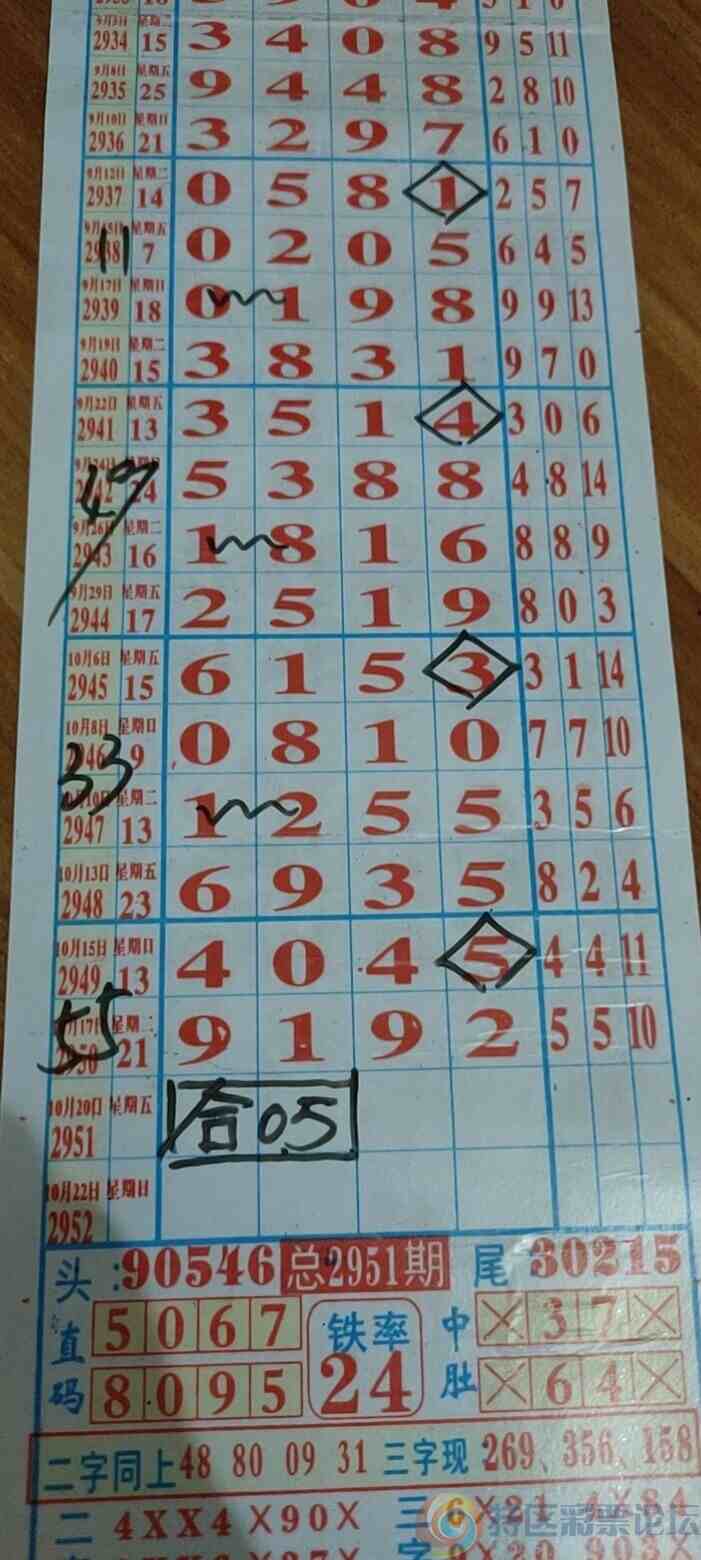 9月5日 星期二
2934 15 3 4 0 8 9 5 11
9月8日 星期五
2935 25 9 4 4 8 2 8 10
9月10日 星期日
2936 21 3 2 9 7 6 1 0
9月12日 星期二
2937 14 0 5 8 1 2 5 7
9月15日 星期五
2938 7 0 2 0 5 6 4 5
11
9月17日 星期日
2939 18 0 1 9 8 9 9 13
9月19日 星期二
2940 15 3 8 3 1 9 7 0
9月22日 星期五
2941 13 3 5 1 4 3 0 6
9月24日 星期日
2942 24 5 3 8 8 4 8 14
9月26日 星期二
2943 16 1 8 1 6 8 8 9
9月29日 星期五
2944 17 2 5 1 9 8 0 3
10月6日 星期五
2945 15 6 1 5 3 3 1 14
10月8日 星期日
2946 9 0 8 1 0 7 7 10
33
10月10日 星期二
2947 13 1 2 5 5 3 5 6
10月13日 星期五
2948 23 6 9 3 5 8 2 4
10月15日 星期日
2949 13 4 0 4 5 4 4 11
10月17日 星期二
2950 21 9 1 9 2 5 5 10
55
10月20日 星期五
2951 合05
10月22日 星期日
2952
头:90546 总2951期 尾 30215
直码 5067 铁率 中肚 X37X
8095 24 X64X
二字同上 48 80 09 31 三字现 269、356、158
二 4XX4 X90X 三 6X21 4X84
特区彩票论坛